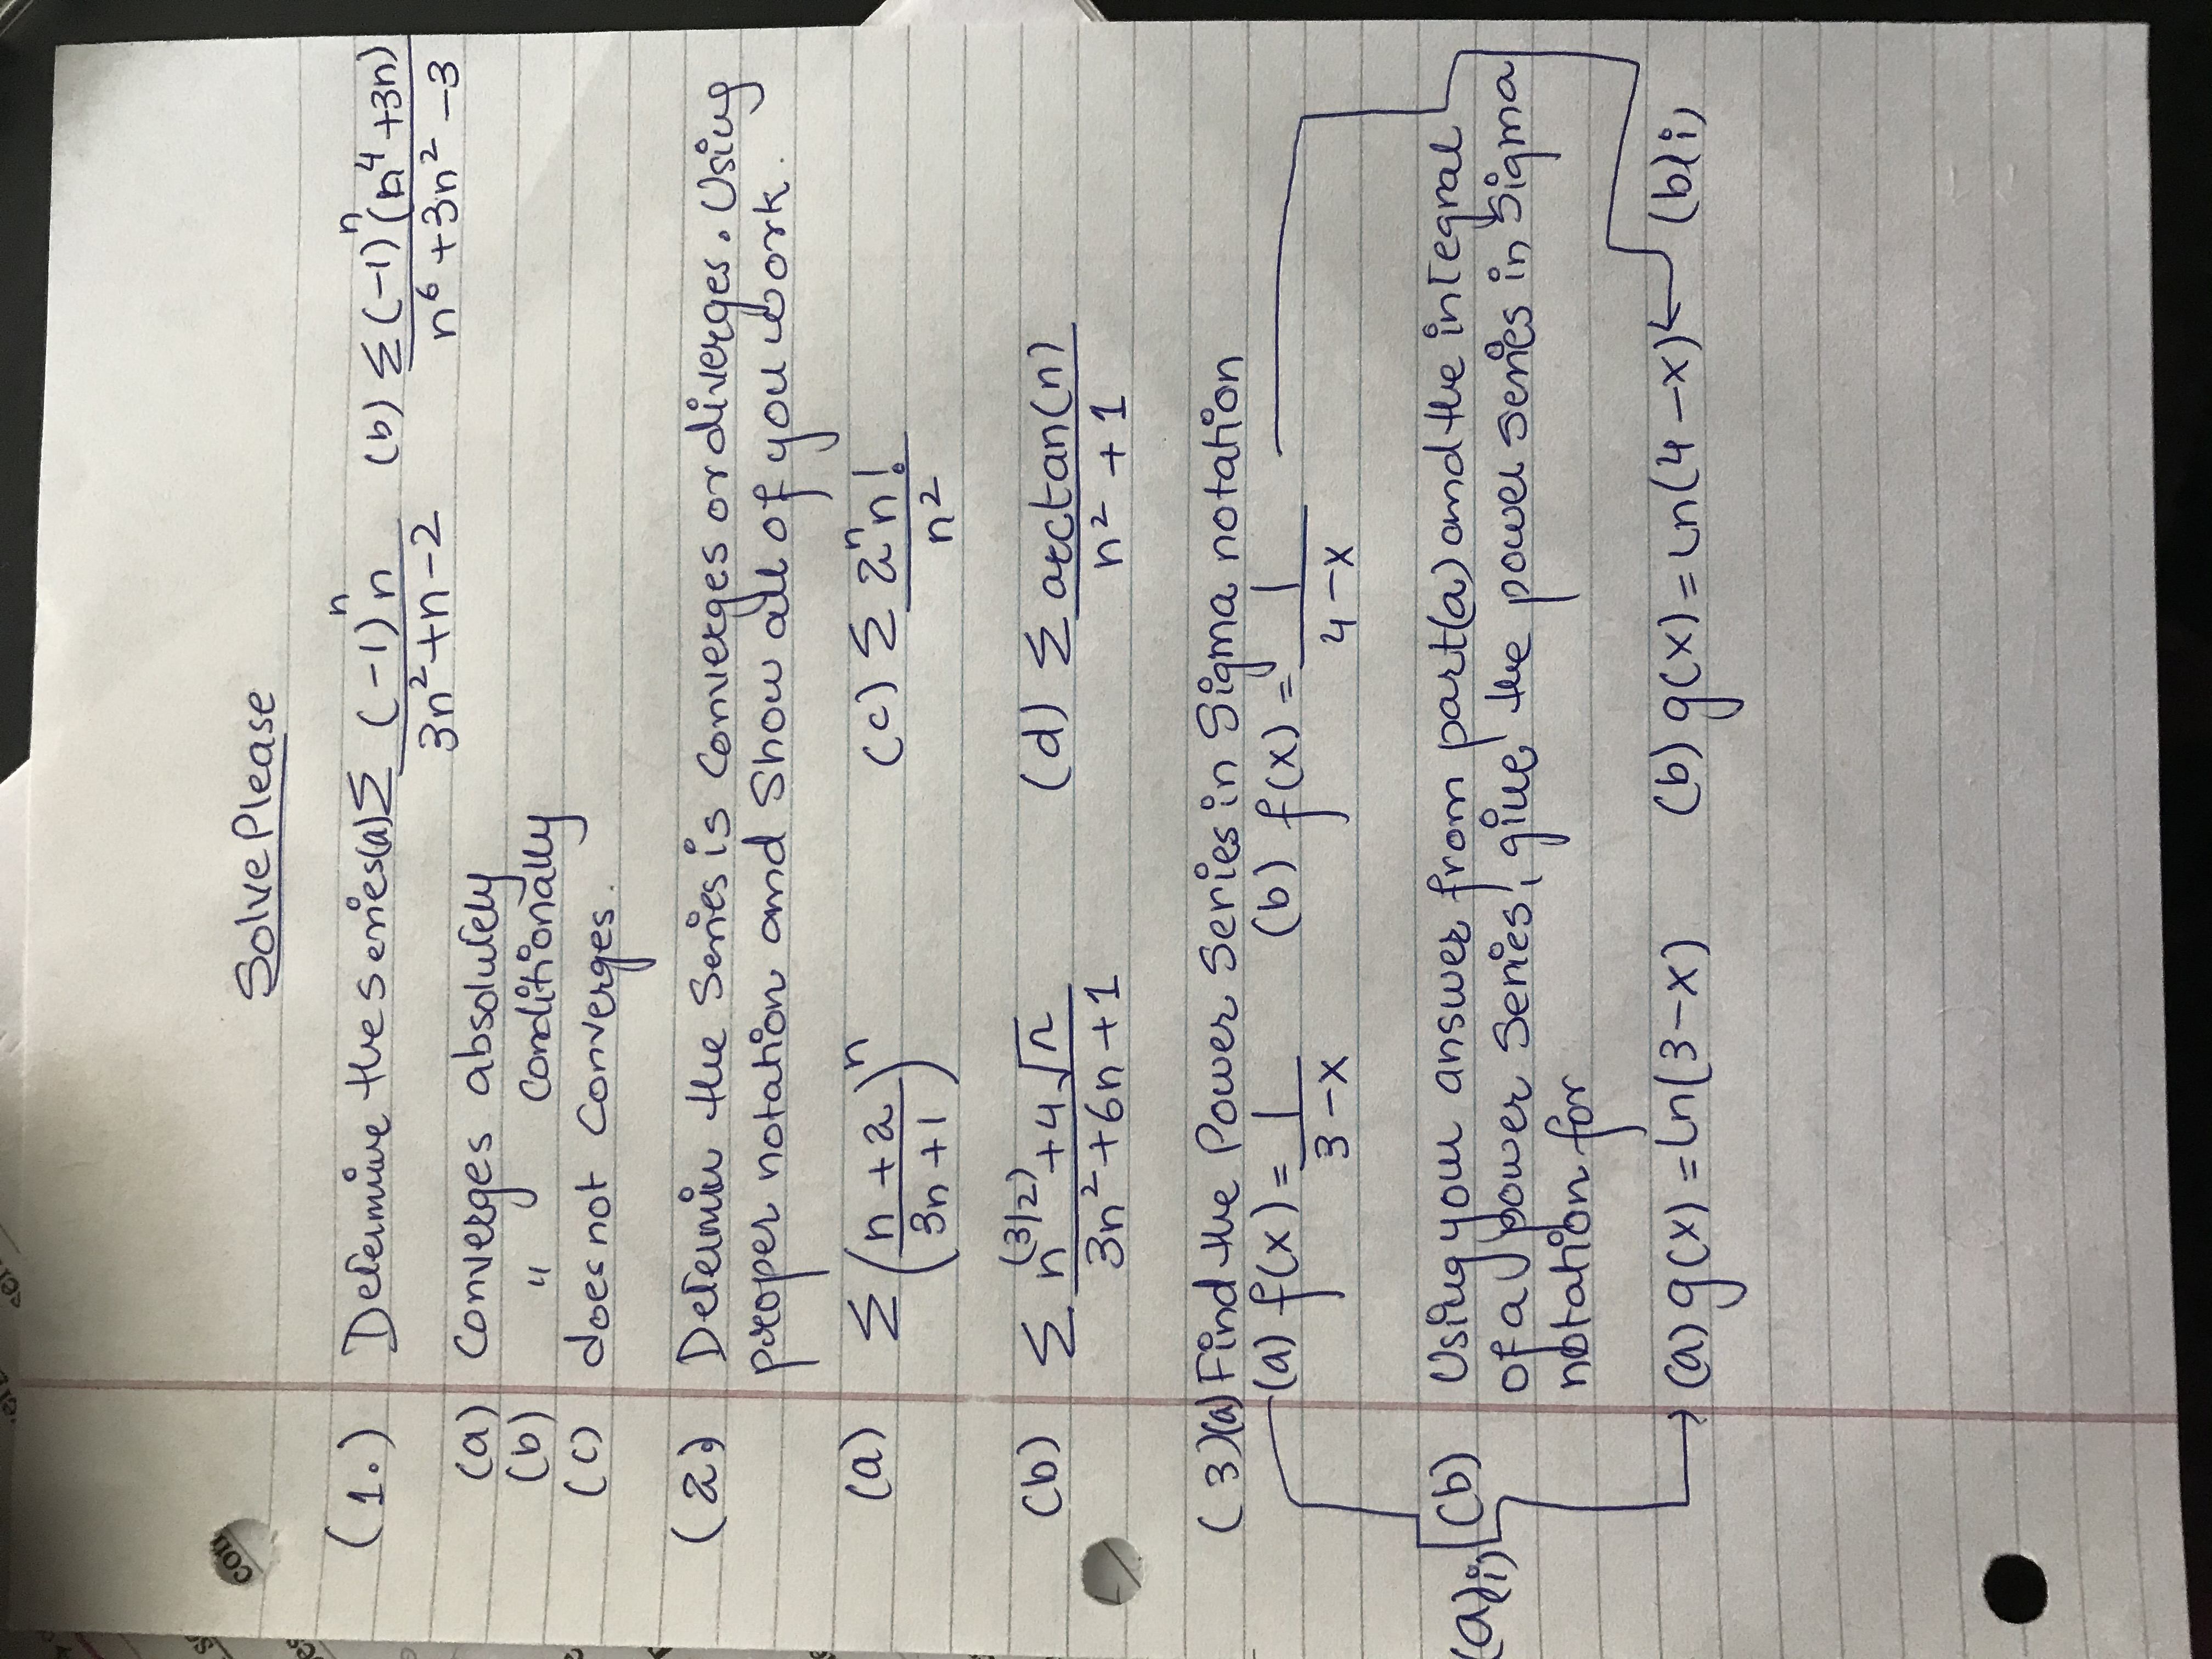 Solve Please
(1.) Determine the series (a) Σ (-1)ⁿ n / (3n² + n - 2) (b) Σ (-1)ⁿ (n⁴ + 3n) / (n⁶ + 3n² - 3)
(a) Converges absolutely
(b) " Conditionally
(c) does not converges.
(2) Determin the Series is Converges or diverges. Using
proper notation and Show all of you work.
(a) Σ ((n + 2) / (3n + 1))ⁿ (c) Σ 2ⁿ n! / n²
(b) Σ (n^(3/2) + 4√n) / (3n² + 6n + 1) (d) Σ arctan(n) / (n² + 1)
(3)(a) Find the Power Series in Sigma notation
(a) f(x) = 1 / (3 - x) (b) f(x) = 1 / (4 - x)
(a)i) (b) Using your answer from part (a) and the integral
of a power series, give the power series in Sigma
notation for
(a) g(x) = ln(3 - x) (b) g(x) = ln(4 - x) (b)i)